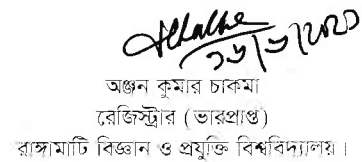 ১৬/৬/২০২০
অঞ্জন কুমার চাকমা
রেজিস্ট্রার (ভারপ্রাপ্ত)
রাঙ্গামাটি বিজ্ঞান ও প্রযুক্তি বিশ্ববিদ্যালয়।